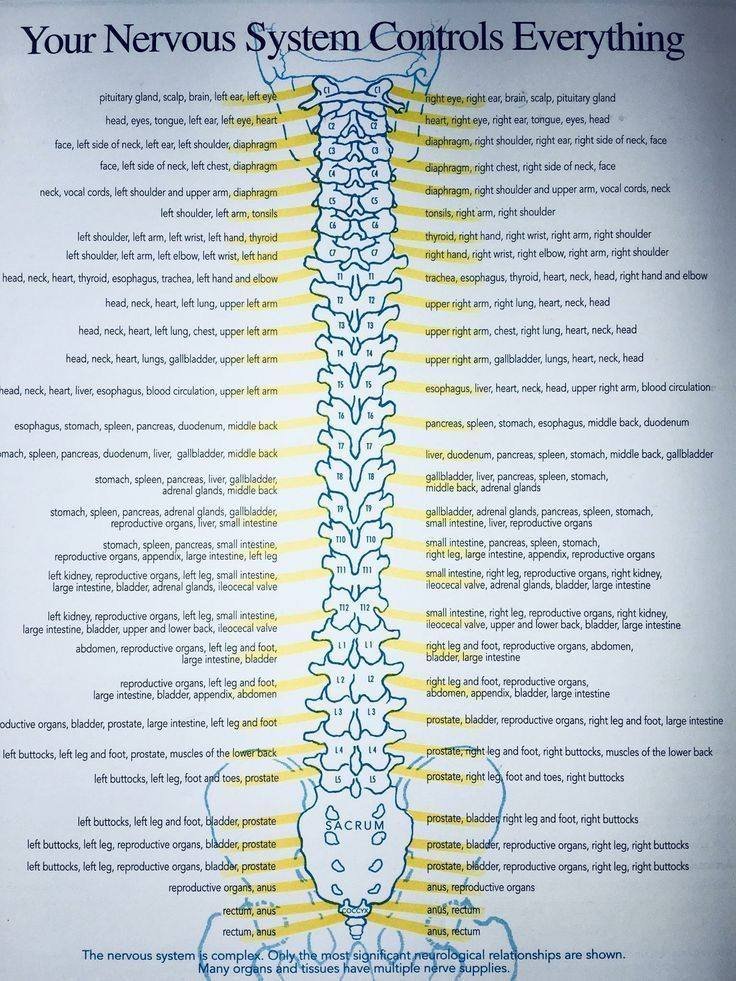 Your Nervous System Controls Everything
pituitary gland, scalp, brain, left ear, left eye
C1 C1
right eye, right ear, brain, scalp, pituitary gland
head, eyes, tongue, left ear, left eye, heart
C2 C2
heart, right eye, right ear, tongue, eyes, head
face, left side of neck, left ear, left shoulder, diaphragm
C3 C3
diaphragm, right shoulder, right ear, right side of neck, face
face, left side of neck, left chest, diaphragm
C4 C4
diaphragm, right chest, right side of neck, face
neck, vocal cords, left shoulder and upper arm, diaphragm
C5 C5
diaphragm, right shoulder and upper arm, vocal cords, neck
left shoulder, left arm, tonsils
C6 C6
tonsils, right arm, right shoulder
left shoulder, left arm, left wrist, left hand, thyroid
C7 C7
thyroid, right hand, right wrist, right arm, right shoulder
left shoulder, left arm, left elbow, left wrist, left hand
right hand, right wrist, right elbow, right arm, right shoulder
head, neck, heart, thyroid, esophagus, trachea, left hand and elbow
T1 T1
trachea, esophagus, thyroid, heart, neck, head, right hand and elbow
head, neck, heart, left lung, upper left arm
T2 T2
upper right arm, right lung, heart, neck, head
head, neck, heart, left lung, chest, upper left arm
T3 T3
upper right arm, chest, right lung, heart, neck, head
head, neck, heart, lungs, gallbladder, upper left arm
T4 T4
upper right arm, gallbladder, lungs, heart, neck, head
head, neck, heart, liver, esophagus, blood circulation, upper left arm
T5 T5
esophagus, liver, heart, neck, head, upper right arm, blood circulation
esophagus, stomach, spleen, pancreas, duodenum, middle back
T6 T6
pancreas, spleen, stomach, esophagus, middle back, duodenum
mach, spleen, pancreas, duodenum, liver, gallbladder, middle back
T7 T7
liver, duodenum, pancreas, spleen, stomach, middle back, gallbladder
stomach, spleen, pancreas, liver, gallbladder,
adrenal glands, middle back
T8 T8
gallbladder, liver, pancreas, spleen, stomach,
middle back, adrenal glands
stomach, spleen, pancreas, adrenal glands, gallbladder,
reproductive organs, liver, small intestine
T9 T9
gallbladder, adrenal glands, pancreas, spleen, stomach,
small intestine, liver, reproductive organs
stomach, spleen, pancreas, small intestine,
reproductive organs, appendix, large intestine, left leg
T10 T10
small intestine, pancreas, spleen, stomach,
right leg, large intestine, appendix, reproductive organs
left kidney, reproductive organs, left leg, small intestine,
large intestine, bladder, adrenal glands, ileocecal valve
T11 T11
small intestine, right leg, reproductive organs, right kidney,
ileocecal valve, adrenal glands, bladder, large intestine
left kidney, reproductive organs, left leg, small intestine,
large intestine, bladder, upper and lower back, ileocecal valve
T12 T12
small intestine, right leg, reproductive organs, right kidney,
ileocecal valve, upper and lower back, bladder, large intestine
abdomen, reproductive organs, left leg and foot,
large intestine, bladder
L1 L1
right leg and foot, reproductive organs, abdomen,
bladder, large intestine
reproductive organs, left leg and foot,
large intestine, bladder, appendix, abdomen
L2 L2
right leg and foot, reproductive organs,
abdomen, appendix, bladder, large intestine
oductive organs, bladder, prostate, large intestine, left leg and foot
L3 L3
prostate, bladder, reproductive organs, right leg and foot, large intestine
left buttocks, left leg and foot, prostate, muscles of the lower back
L4 L4
prostate, right leg and foot, right buttocks, muscles of the lower back
left buttocks, left leg, foot and toes, prostate
L5 L5
prostate, right leg, foot and toes, right buttocks
left buttocks, left leg and foot, bladder, prostate
SACRUM
prostate, bladder, right leg and foot, right buttocks
left buttocks, left leg, reproductive organs, bladder, prostate
prostate, bladder, reproductive organs, right leg, right buttocks
left buttocks, left leg, reproductive organs, bladder, prostate
prostate, bladder, reproductive organs, right leg, right buttocks
reproductive organs, anus
anus, reproductive organs
rectum, anus
COCCYX
anus, rectum
rectum, anus
anus, rectum
The nervous system is complex. Only the most significant neurological relationships are shown.
Many organs and tissues have multiple nerve supplies.